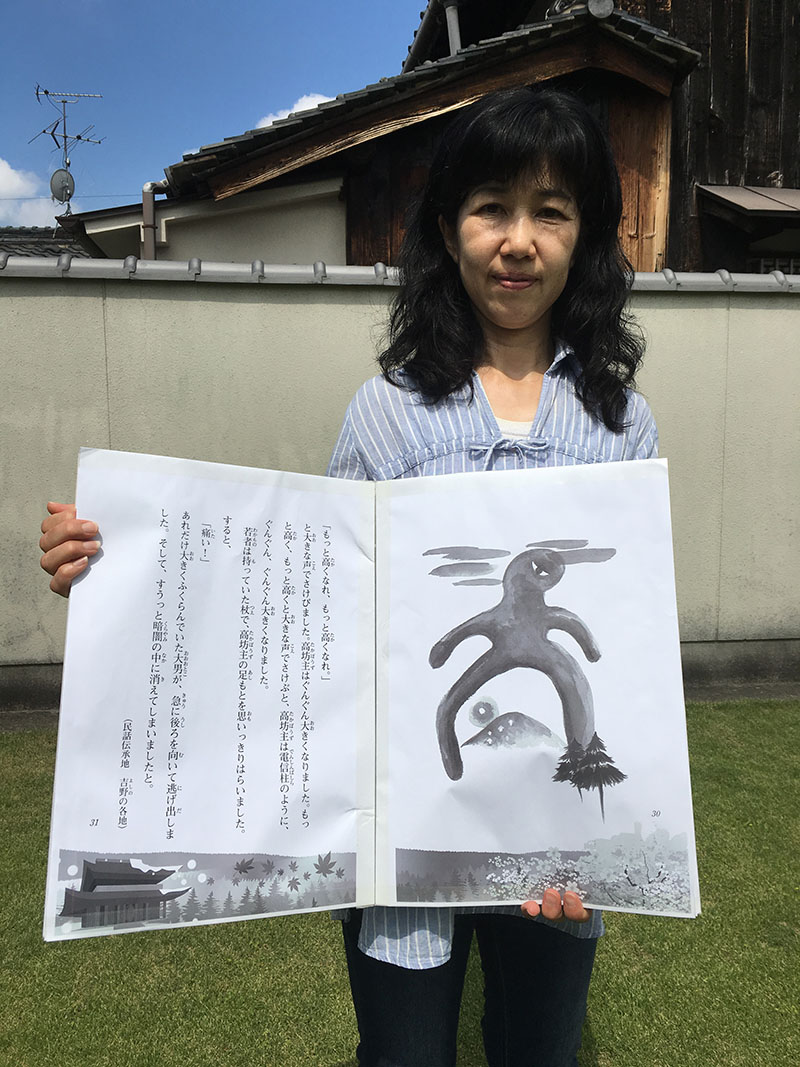 「もっと高くなれ、もっと高くなれ。」
と大きな声でさけびました。高坊主はぐんぐん大きくなりました。もっ
と高く、もっと高くと大きな声でさけぶと、高坊主は電信柱のように、
ぐんぐん、ぐんぐん大きくなりました。
若者は持っていた杖で、高坊主の足もとを思いっきりはらいました。
すると、
「痛い！」
あれだけ大きくふくらんでいた大男が、急に後ろを向いて逃げ出しま
した。そして、すうっと暗闇の中に消えてしまいましたと。
（民話伝承地　吉野の各地）
31
30